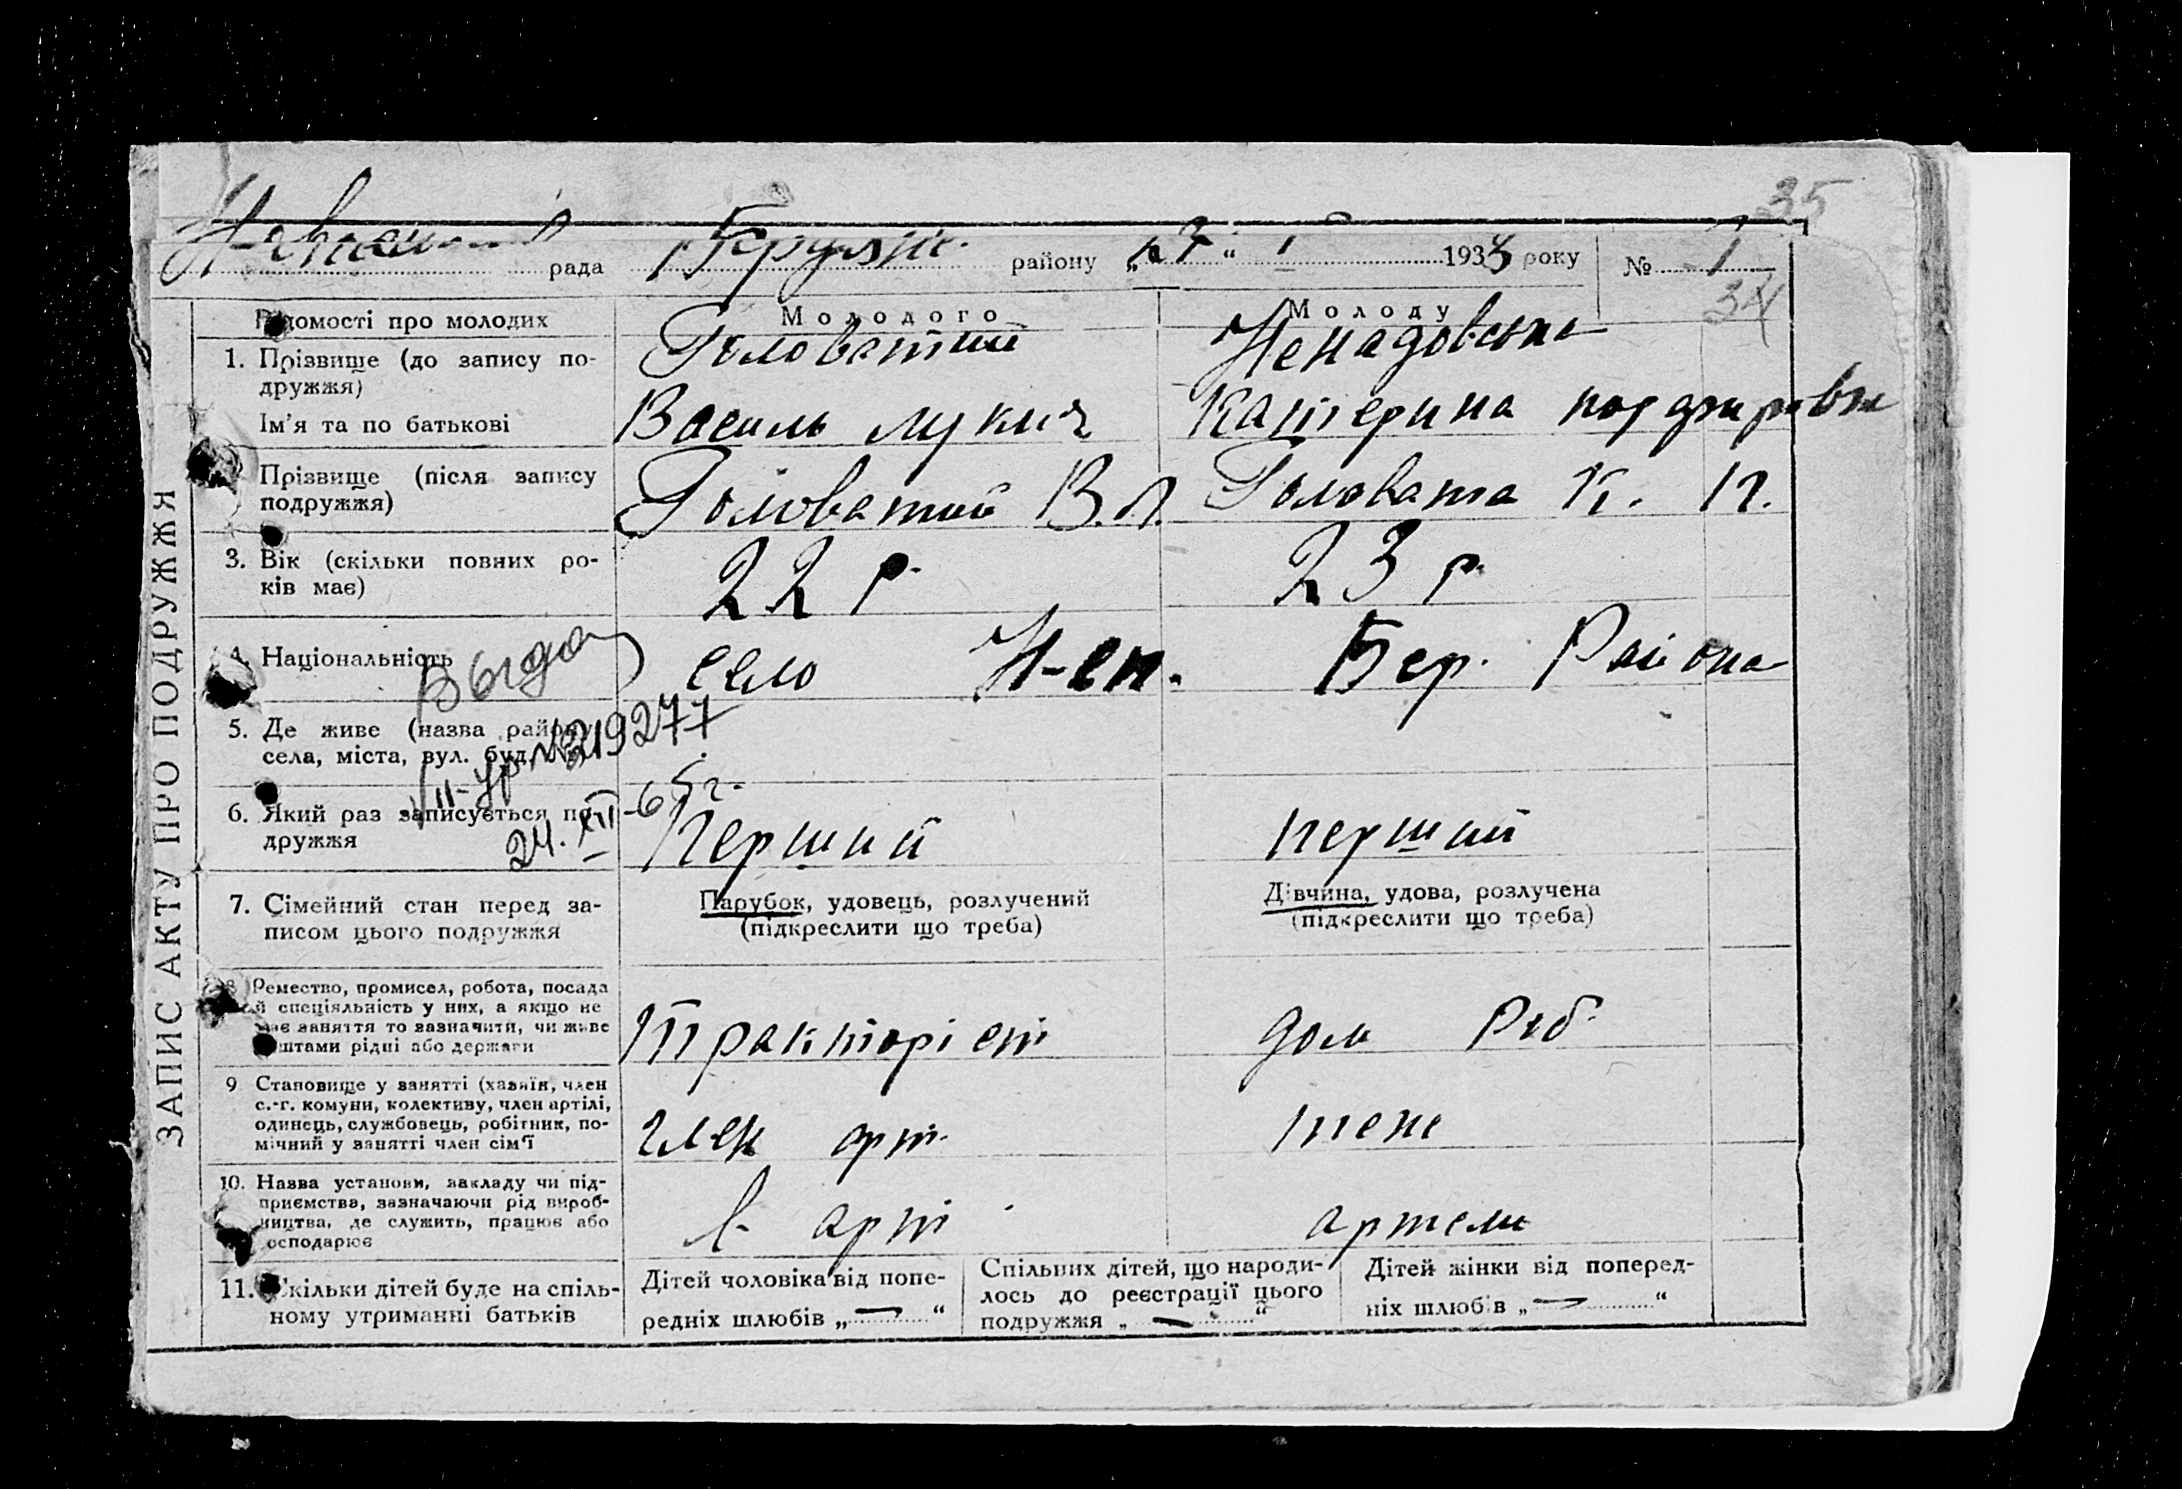 35
рада району „27“ I 1934 року № 1
34
Відомості про молодих Молодого Молоду
1. Прізвище (до запису по- Головатий Ненадовська
дружжя)
Ім'я та по батькові Василь Лукич Катерина
Прізвище (після запису Головатий В.Л. Головата К. П.
подружжя)
3. Вік (скільки повних ро- 22 р. 23 р.
ків має)
4. Національність село Н-еп. Бер. Района
Выдан
5. Де живе (назва району,
села, міста, вул. буд. №219277
VII-УР
24. XII-65г.
6. Який раз записується по- Перший перший
дружжя
7. Сімейний стан перед за- Парубок, удовець, розлучений Дівчина, удова, розлучена
писом цього подружжя (підкреслити що треба) (підкреслити що треба)
8. Ремество, промисел, робота, посада
й спеціяльність у них, а якщо не
має заняття то зазначити, чи живе Тракторіст дом Роб
коштами рідні або держави
9 Становище у занятті (хазяїн, член
с.-г. комуни, колективу, член артілі,
одинець, службовець, робітник, по- член арт. теж
мічний у занятті член сім'ї
10. Назва установи, закладу чи під-
приємства, зазначаючи рід вироб-
ництва, де служить, працює або в арт артели
господарює
11. Скільки дітей буде на спіль- Дітей чоловіка від попе- Спільних дітей, що народи- Дітей жінки від поперед-
ному утриманні батьків редніх шлюбів „—“ лось до реєстрації цього ніх шлюбів „—“
подружжя „—“
ЗАПИС АКТУ ПРО ПОДРУЖЖЯ